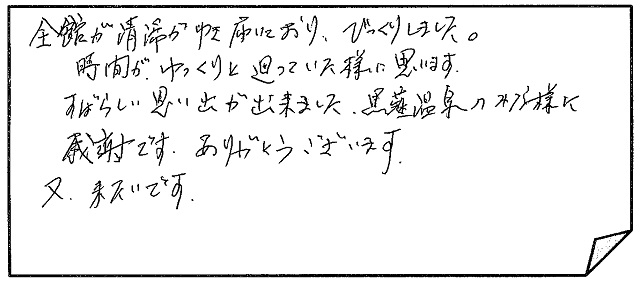 全館が清掃がゆき届いており、びっくりしました。
時間が、ゆっくりと廻っていた様に思います。
すばらしい思い出が出来ました。黒薙温泉の 様に
感謝です。ありがとうございます。
又、来たいです。